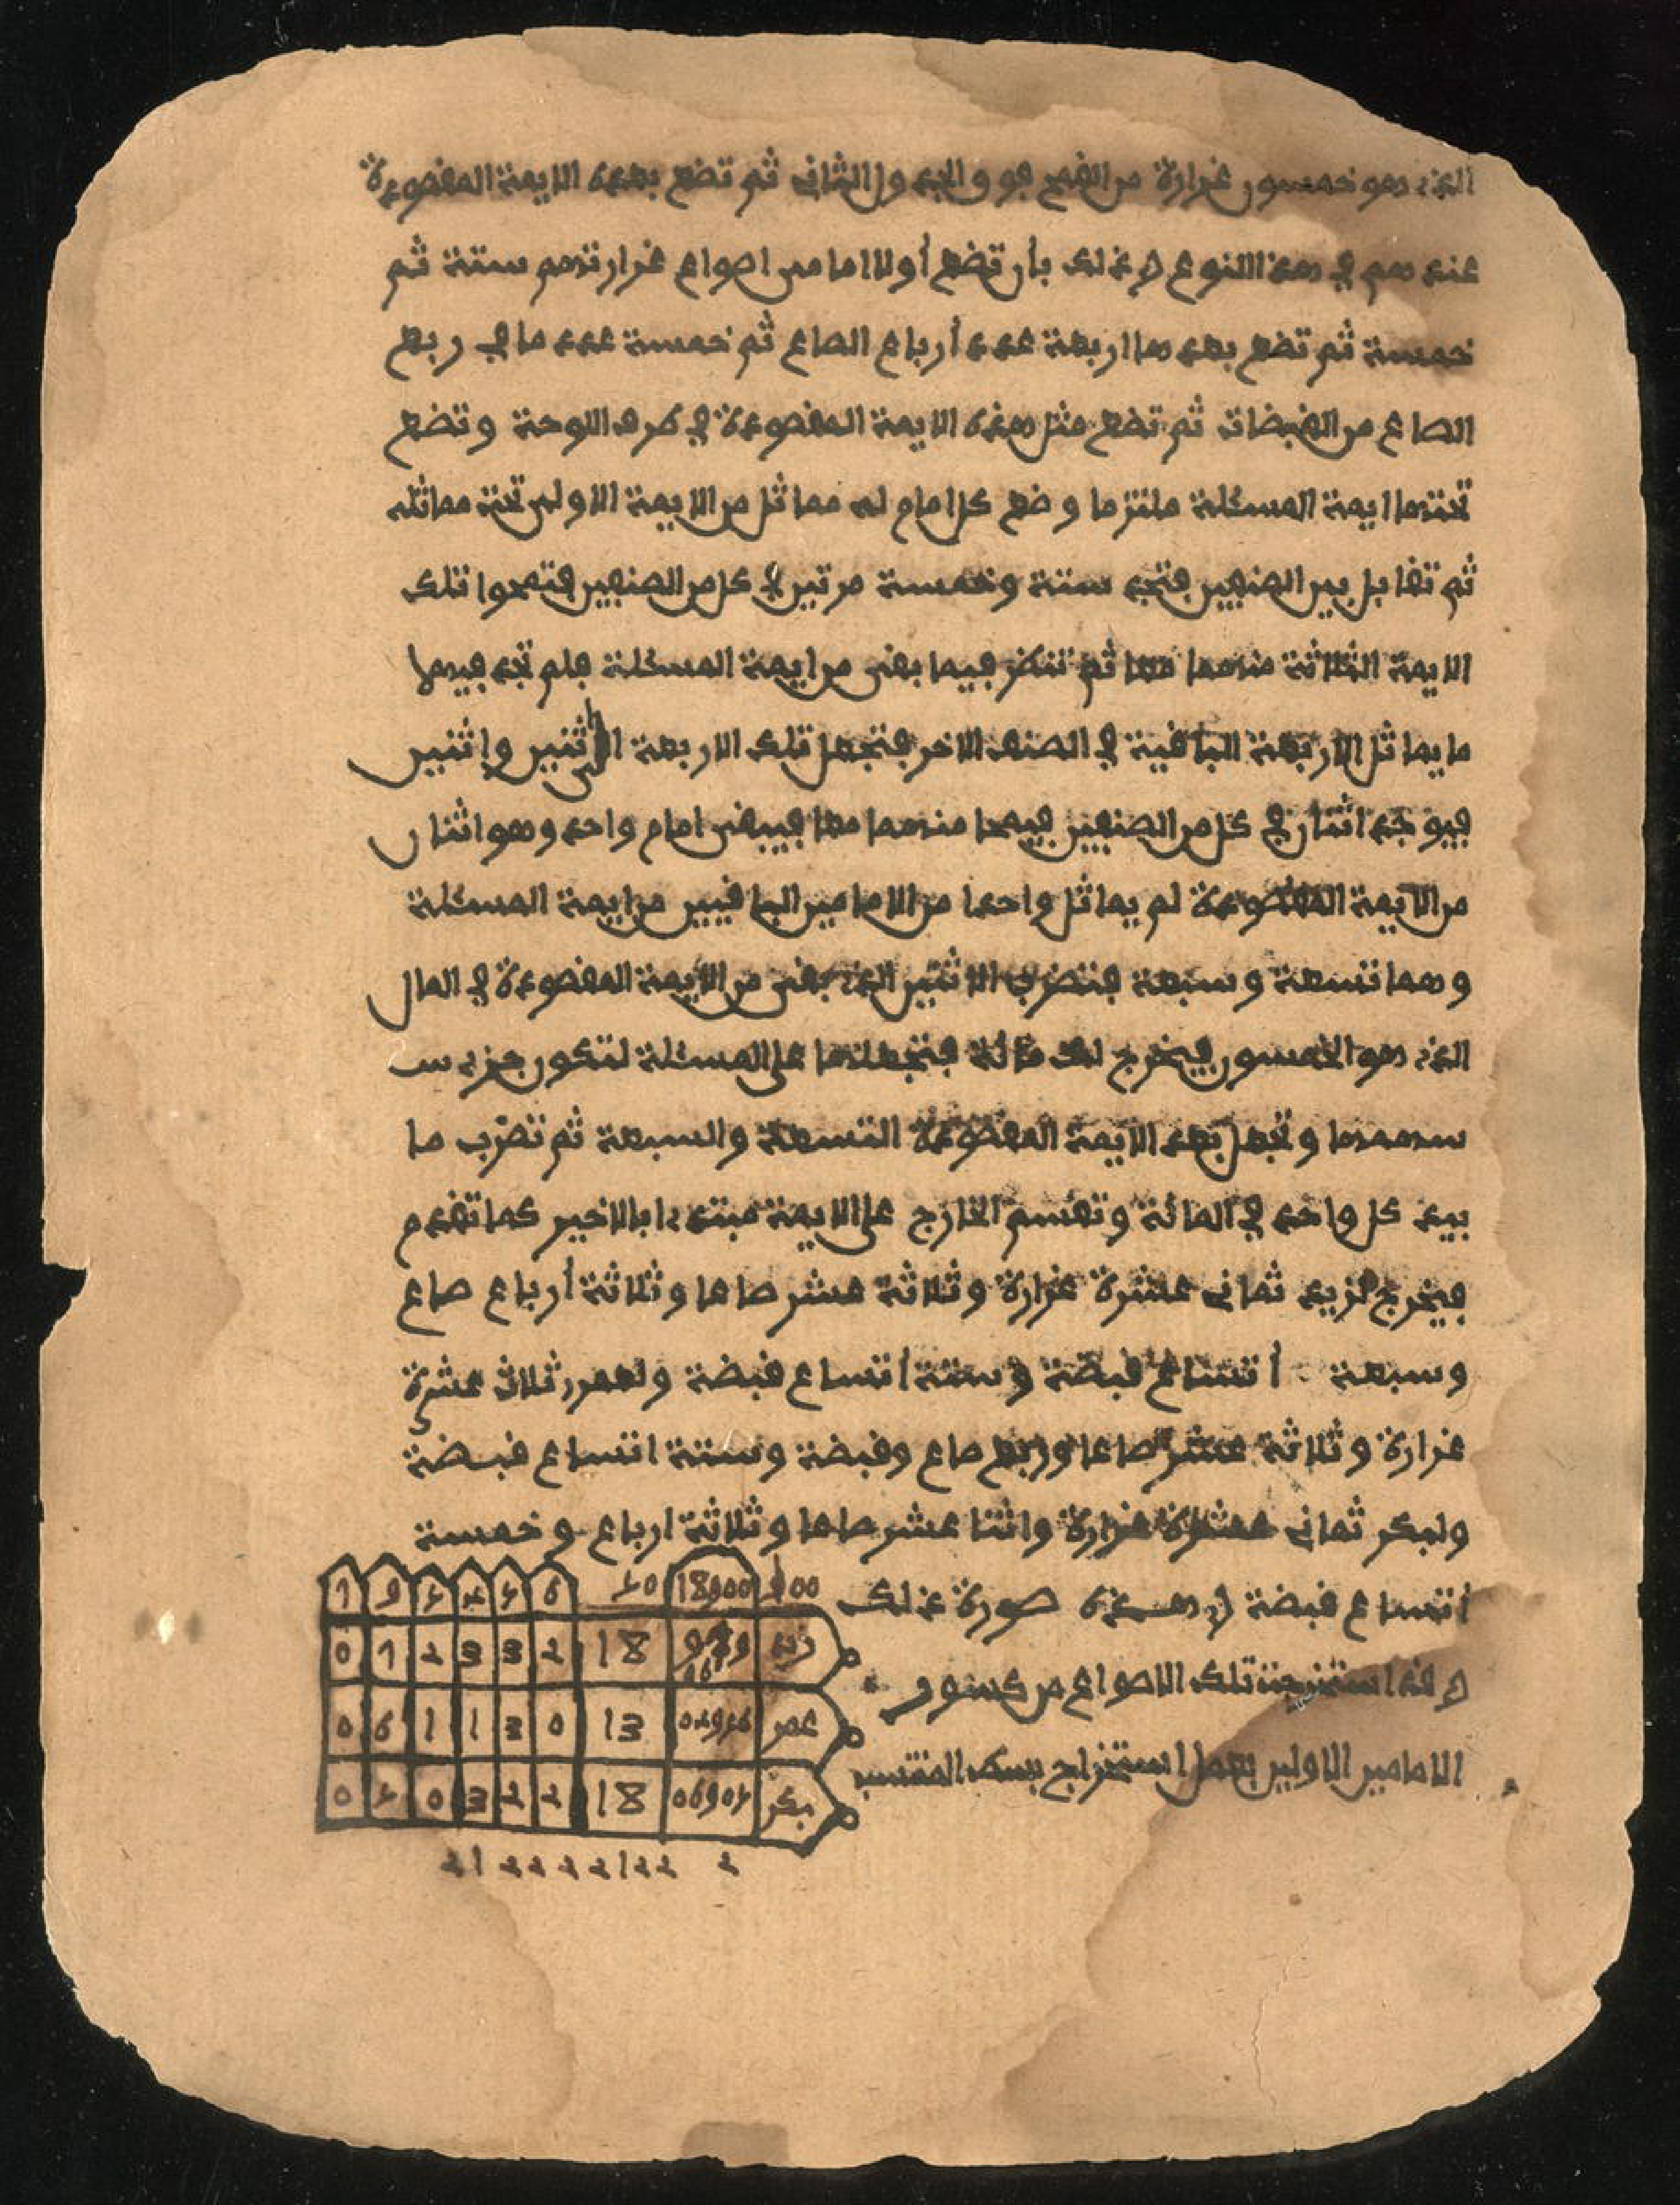 الذي هو خمسون غرارة من القمح فوق الجدول الثاني ثم تضع بعده الايمة المقصودة
عندهم في هذا النوع وذلك بأن تضع أولا امامي اصواع غرارتهم ستة ثم
خمسة ثم تضع بعدها اربعة عدد أرباع الصاع ثم خمسة عدد ما في ربع
الصاع من القبضات ثم تضع مثل هذه الايمة المقصودة في طرف اللوحة وتضع
تحتها ايمة المسئلة ملتزما وضع كل امام له مماثل من الايمة الاولى تحت مماثله
ثم تقابل بين الصنفين فتجد ستة وخمسة مرتين في كل من الصنفين فتمحوا تلك
الايمة الثلاثة منهما معا ثم تنظر فيما بقي من ايمة المسئلة فلم تجد فيها
ما يماثل الاربعة الباقية في الصنف الاخر فتجعل تلك الاربعة الى اثنين واثنين
فيوجد اثنان في كل من الصنفين فيمحا منهما معا فيبقى امام واحد وهو اثنان
من الايمة المقصودة لم يماثل واحدا من الامامين الباقيين من ايمة المسئلة
وهما تسعة وسبعة فتضرب الاثنين الذي بقي من الايمة المقصودة في المال
الذي هو الخمسون فيخرج لك مائة فتجعلها على المسئلة لتكون جزء س
سهمها وتجعل بعد الايمة المقصودة التسعة والسبعة ثم تضرب ما
بيد كل واحد في المائة وتقسم الخارج على الايمة مبتدءا بالاخير كما تقدم
فيخرج لزيد ثماني عشرة غرارة وثلاثة عشر صاعا وثلاثة أرباع صاع
وسبعة أتساع قبضة وستة أتساع قبضة ولعمر ثلاث عشرة
غرارة وثلاثة عشر صاعا وربع صاع وقبضة وستة اتساع قبضة
ولبكر ثماني عشرة غرارة واثنا عشر صاعا وثلاثة ارباع وخمسة
أتساع قبضة وهذه صورة ذلك
وقد استخرجت تلك الاصواع من كسور
الامامين الاولين بعمل استخراج بسط المنتسب
100 18900 50 6 5 4 5 9 7
زيد 18 2 3 3 2 7 0
عمر 13 0 3 1 1 6 0
بكر 18 2 2 3 0 5 0